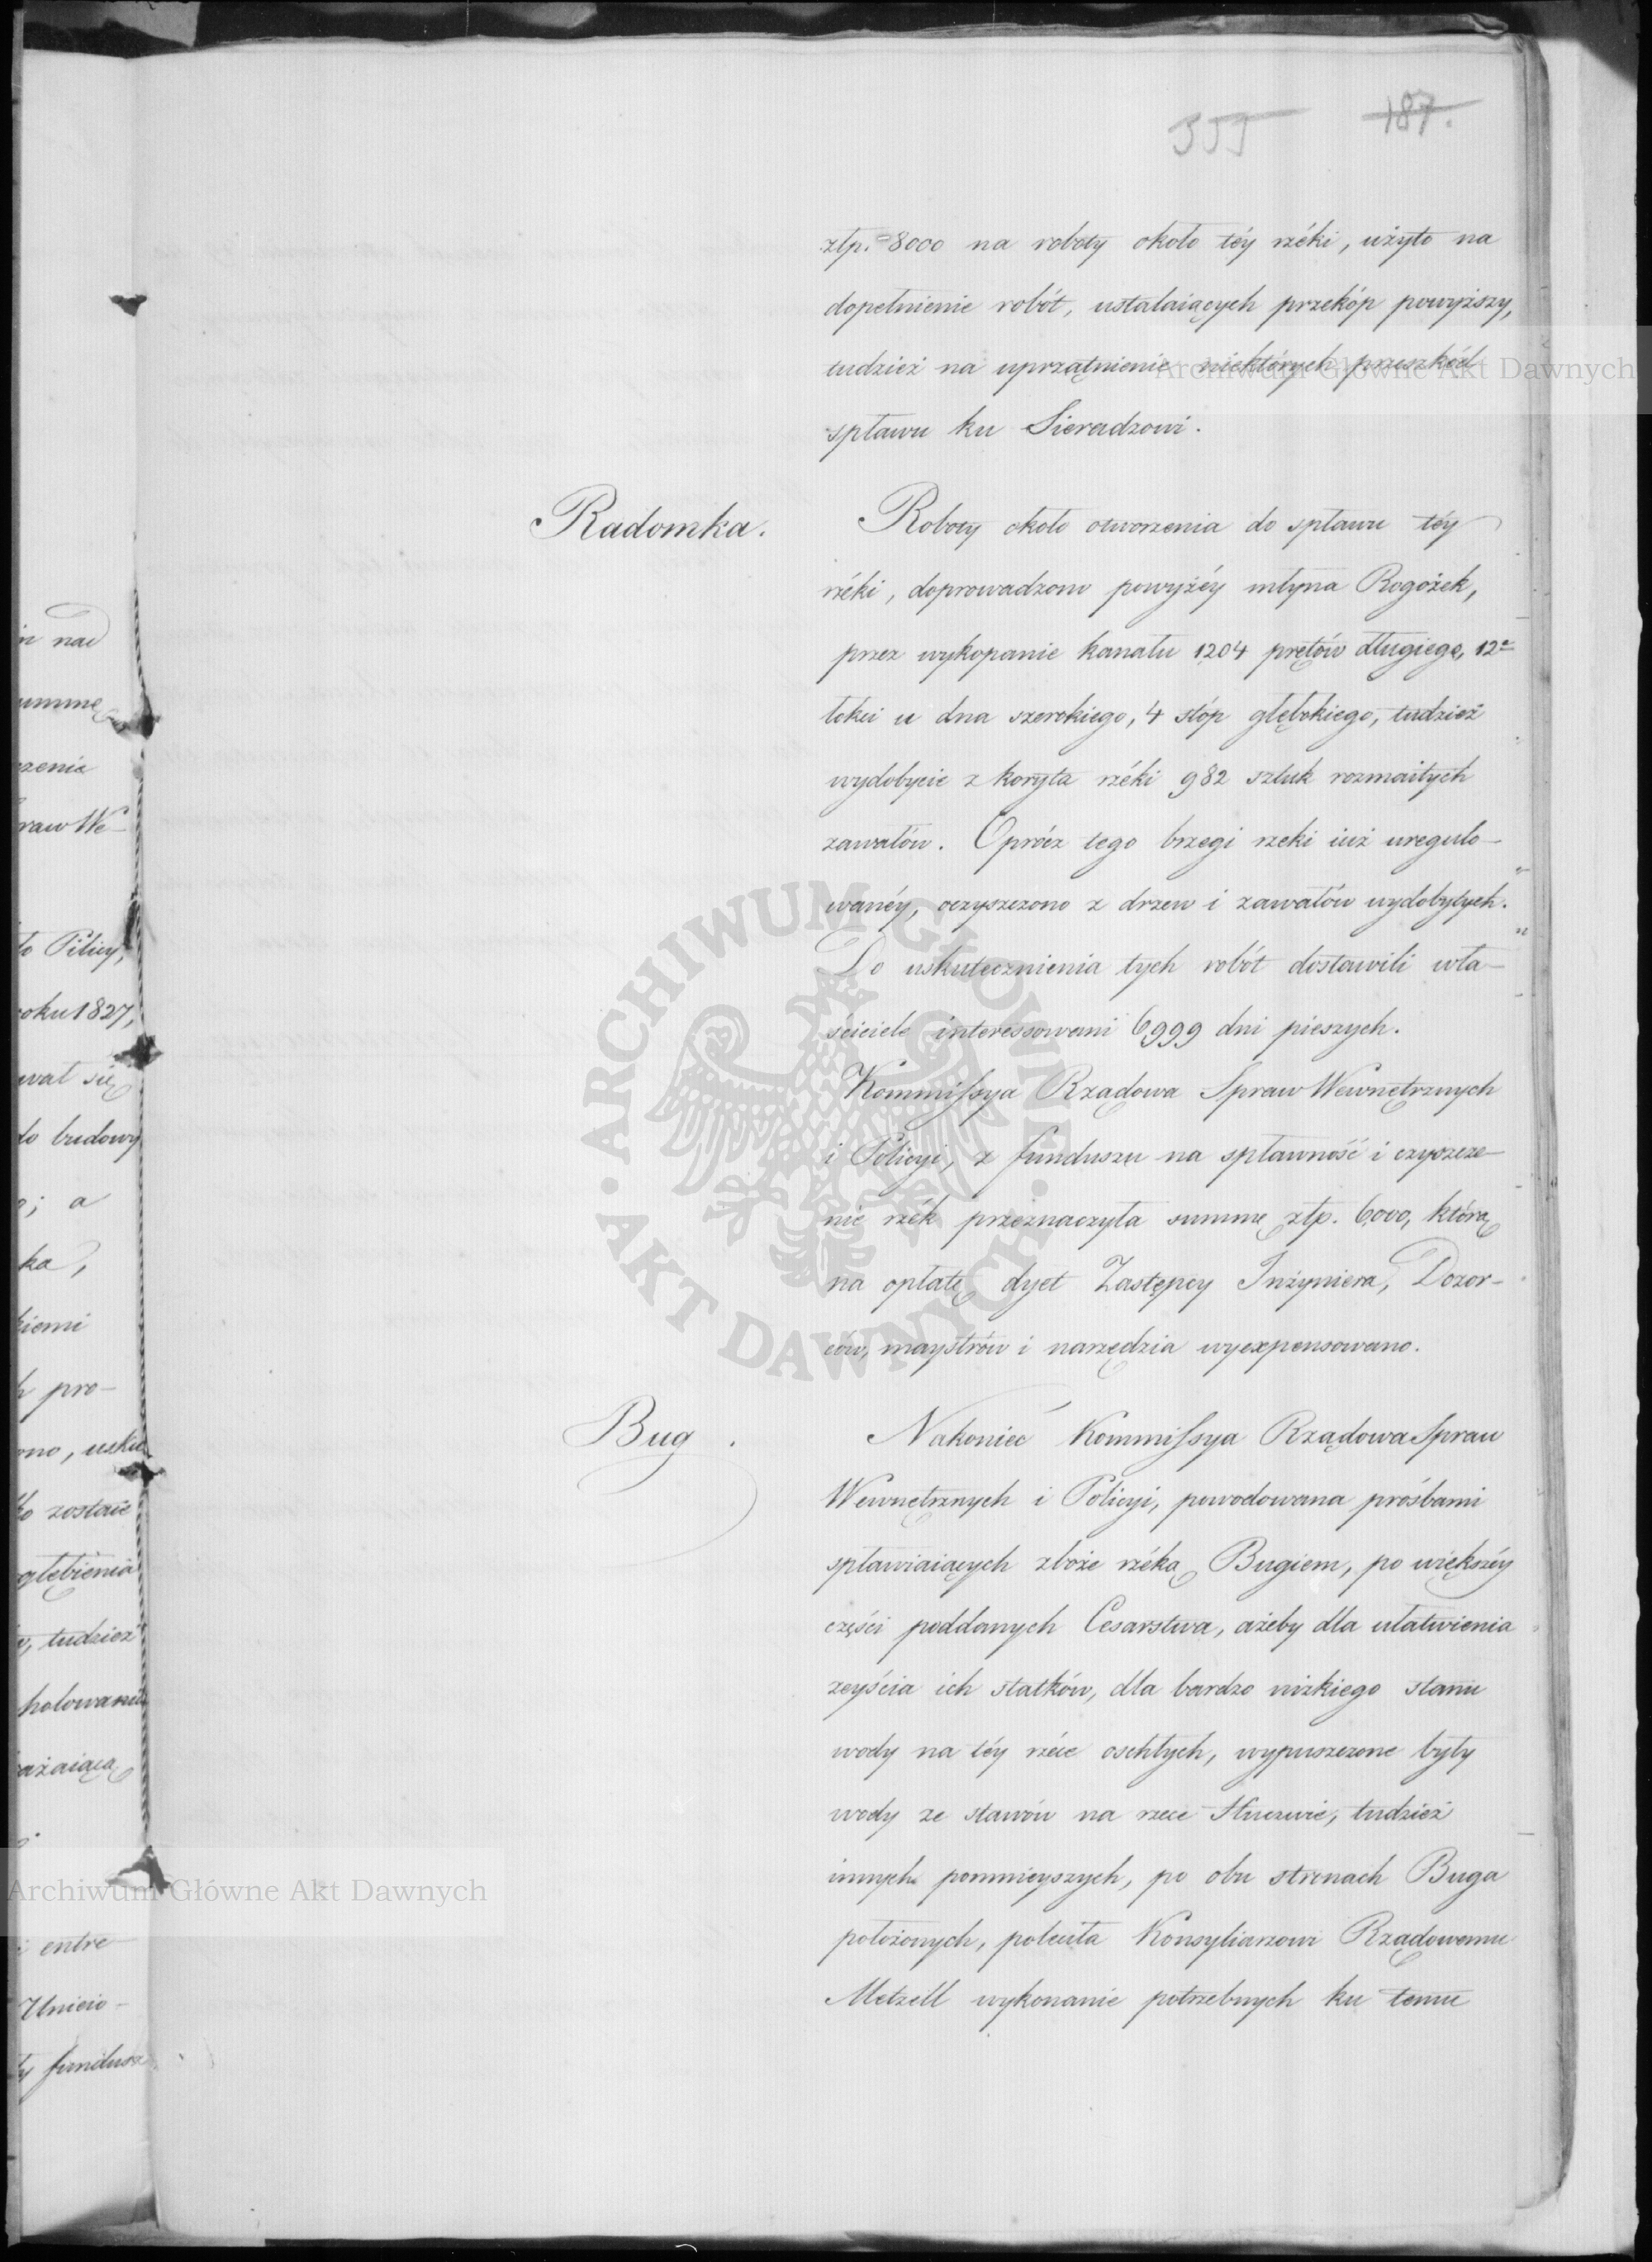 355 187.
złp. 8000 na roboty około téy rzéki, użyto na
dopełnienie robót, ustalaiących przekóp powyższy,
tudzież na uprzątnienie niektórych przeszkód
spławu ku Sieradzowi.
Radomka.
Roboty około otworzenia do spławu téy
rzéki, doprowadzono powyżéy młyna Rogożek,
przez wykopanie kanału 1204 prętów długiego, 12e
łokci u dna szerokiego, 4 stóp głębokiego, tudzież
wydobycie z koryta rzéki 982 sztuk rozmaitych
zawałów. Oprócz tego brzegi rzeki iuż uregulo-
wanéy, oczyszczono z drzew i zawałów wydobytych.
Do uskutecznienia tych robót dostawili wła-
ściciele interessowani 6,999 dni pieszych.
Kommissya Rządowa Spraw Wewnętrznych
i Policyi, z funduszu na spławność i czyszcze-
nie rzék przeznaczyła summę złp. 6,000, którą
na opłatę dyet Zastępcy Inżyniera, Dozor-
ców, maystrów i narzędzia wyexpensowano.
Bug.
Nakoniec Kommissya Rządowa Spraw
Wewnętrznych i Policyi, powodowana prośbami
spławiaiących zboże rzéką Bugiem, po większéy
części poddanych Cesarstwa, ażeby dla ułatwienia
zeyścia ich statków, dla bardzo nizkiego stanu
wody na téy rzéce oschłych, wypuszczone były
wody ze stawów na rzece Huczwie, tudzież
innych pomnieyszych, po obu stronach Buga
położonych, poleciła Konsyliarzowi Rządowemu
Metzell wykonanie potrzebnych ku temu
n nad
ummę
zenia
raw We-
to Pilicy,
oku 1827,
wał się
do budowy
; a
ka,
kiemi
h pro-
ono, usku
ko zostaie
głębienia
, tudzież
holowania
ażaiącą
i entre
Uniew-
ty fundusz
Archiwum Główne Akt Dawnych
Archiwum Główne Akt Dawnych
ARCHIWUM GŁÓWNE · AKT DAWNYCH ·